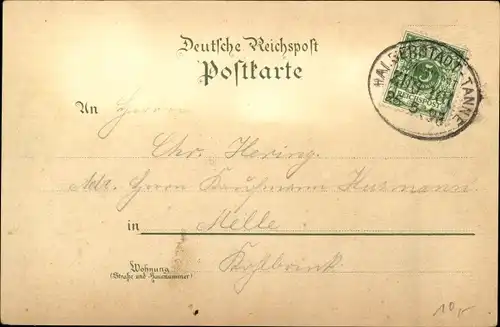 Deutsche Reichspost
Postkarte
HALBERSTADT-TANNE
ZUG
5
REICHSPOST
An Herrn
Chr. Hering.
Adr. Herrn Kaufmann
in Melle
Wohnung
(Straße und Hausnummer)
Kohlbrink.
10,-